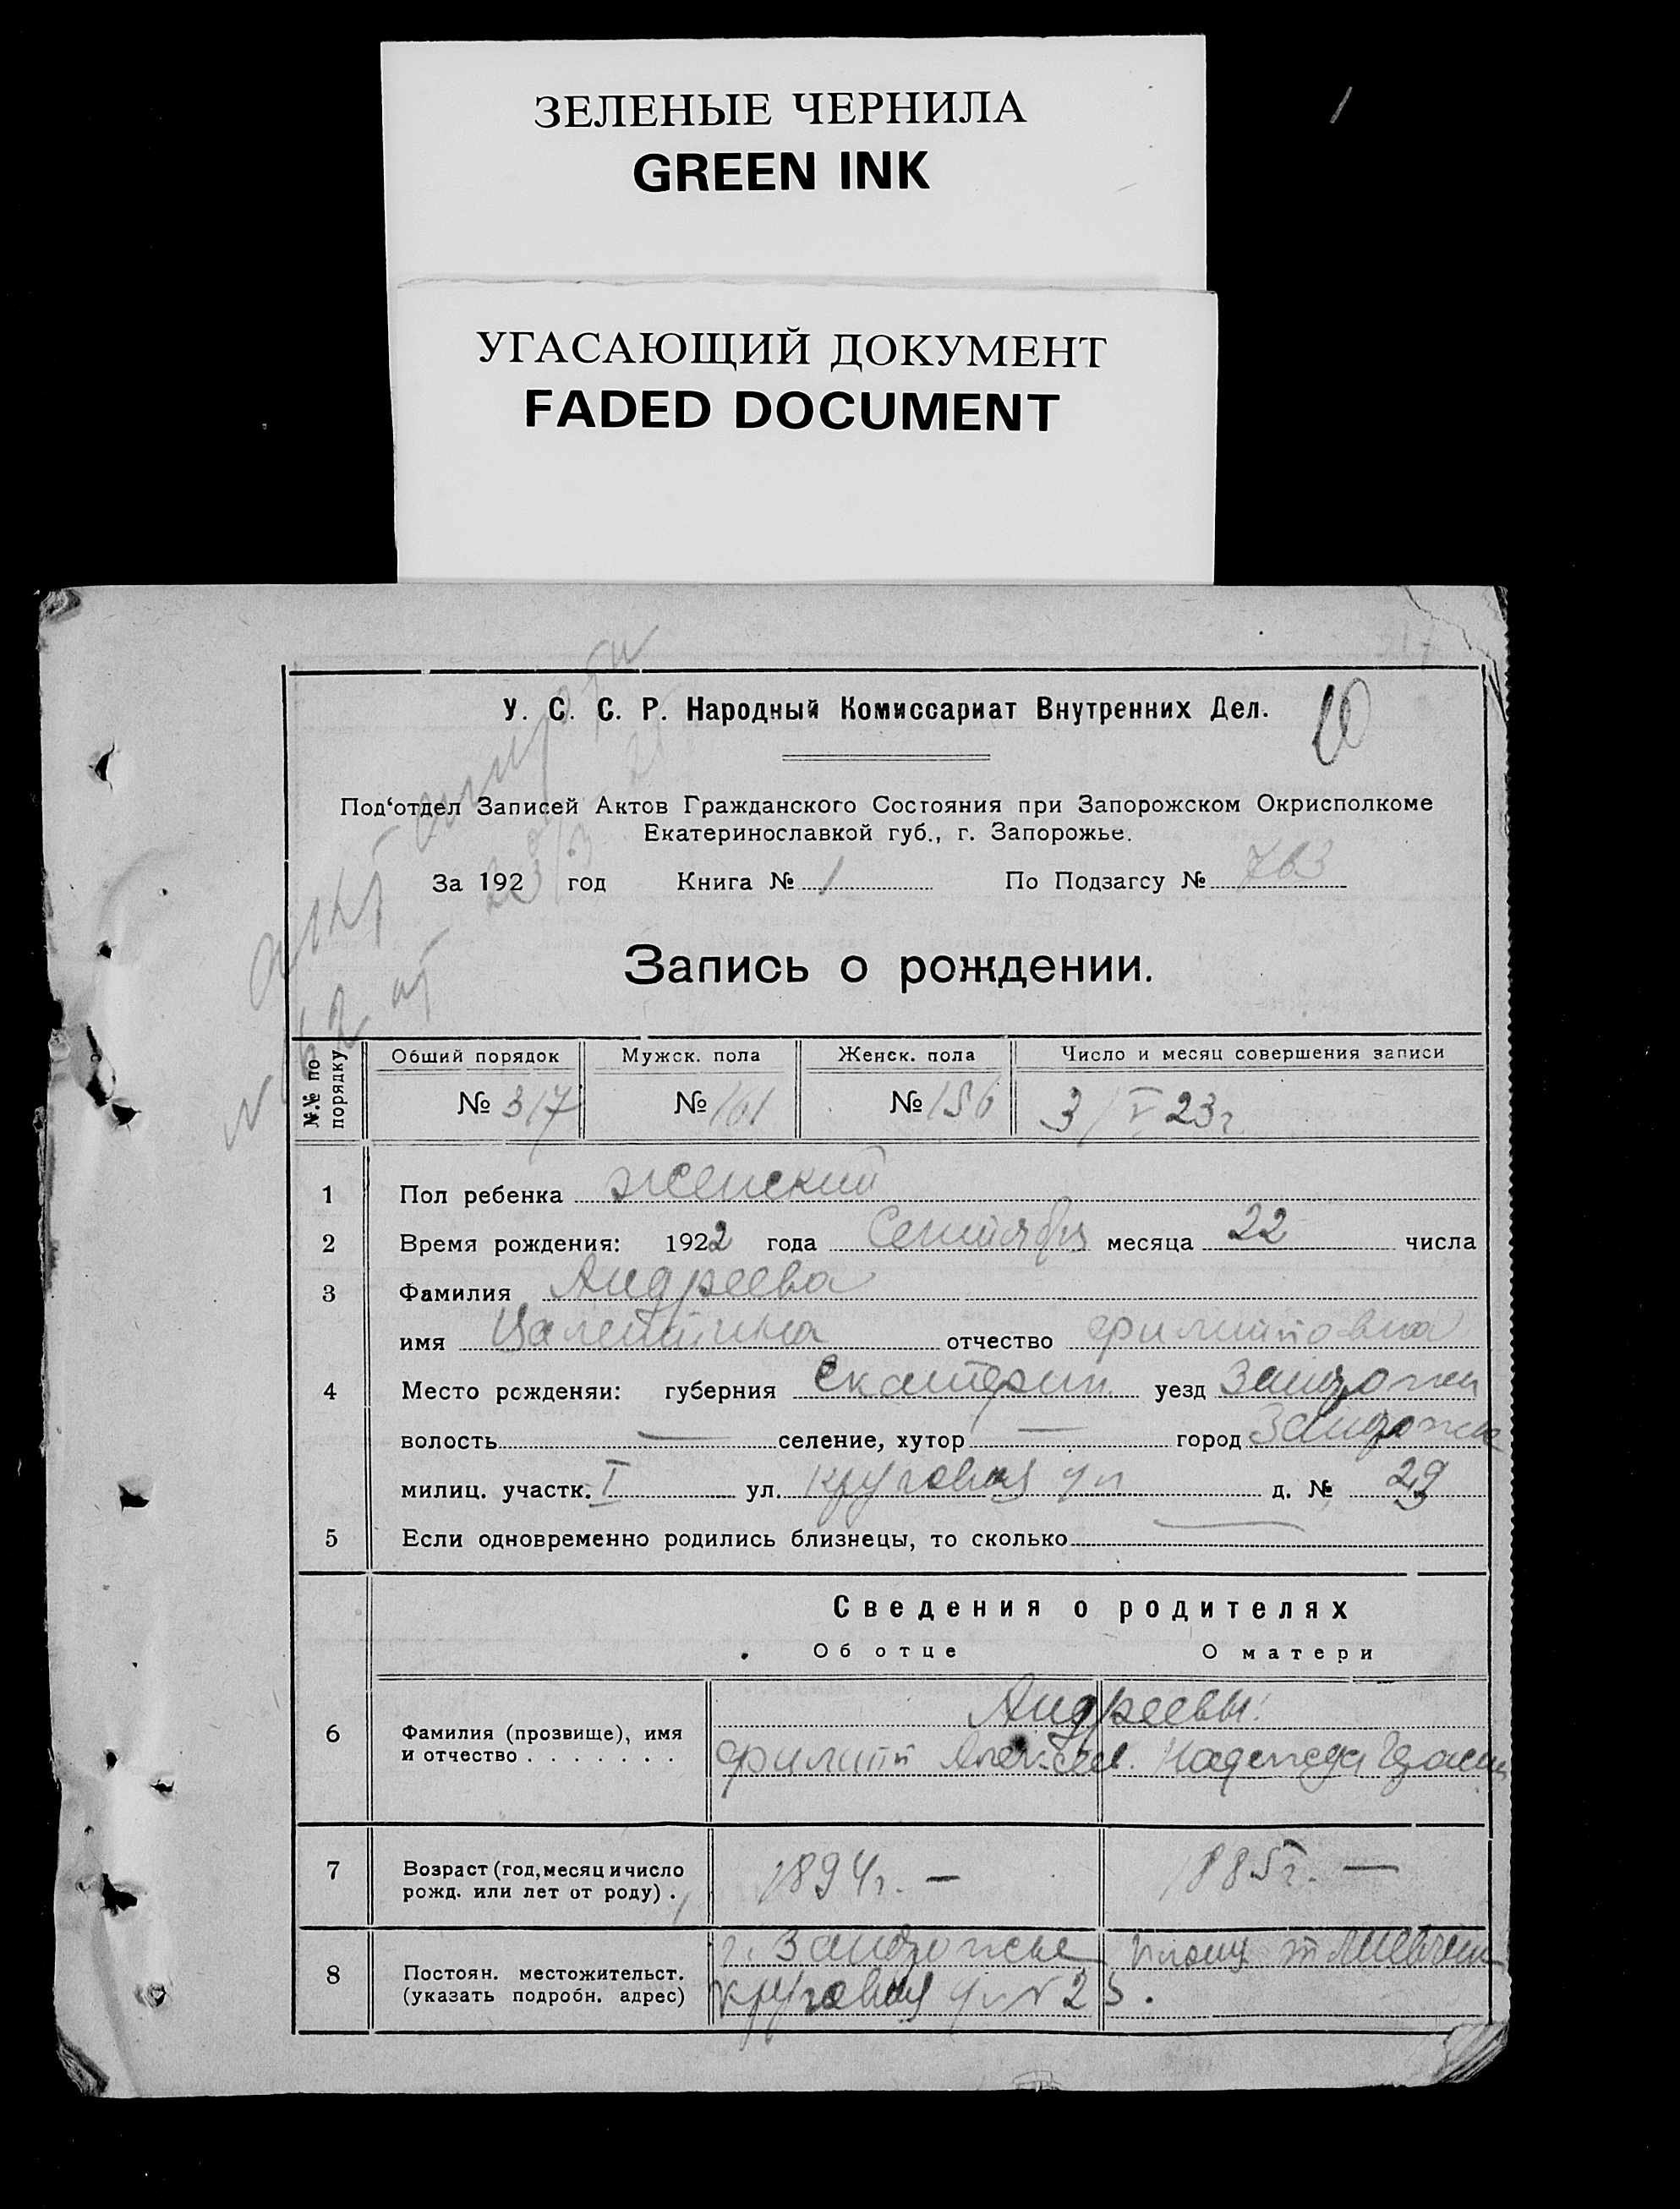 ЗЕЛЕНЫЕ ЧЕРНИЛА
GREEN INK
УГАСАЮЩИЙ ДОКУМЕНТ
FADED DOCUMENT
10
У. С. С. Р. Народный Комиссариат Внутренних Дел.
Под‘отдел Записей Актов Гражданского Состояния при Запорожском Окрисполкоме
Екатеринославкой губ., г. Запорожье.
За 1923 год Книга № 1 По Подзагсу № 763
Запись о рождении.
№.№ по порядку Общий порядок Мужск. пола Женск. пола Число и месяц совершения записи
№ 317 № 161 № 156 3/V 23г
1 Пол ребенка женский
2 Время рождения: 1922 года Сентября месяца 22 числа
3 Фамилия Андреева
имя Валентина отчество Филипповна
4 Место рожденяи: губерния Екатерин. уезд Запорожск
волость — селение, хутор — город Запорожье
милиц. участк. I ул. Круговая ул д. № 29
5 Если одновременно родились близнецы, то сколько —
Сведения о родителях
Об отце О матери
Андреевы:
6 Фамилия (прозвище), имя
и отчество . . . . . . . Филипп Алексеев. Надежда
7 Возраст (год, месяц и число
рожд. или лет от роду) . 1894г. — 1885г. —
г. Запорожье
8 Постоян. местожительст.
(указать подробн. адрес) Круговая ул №